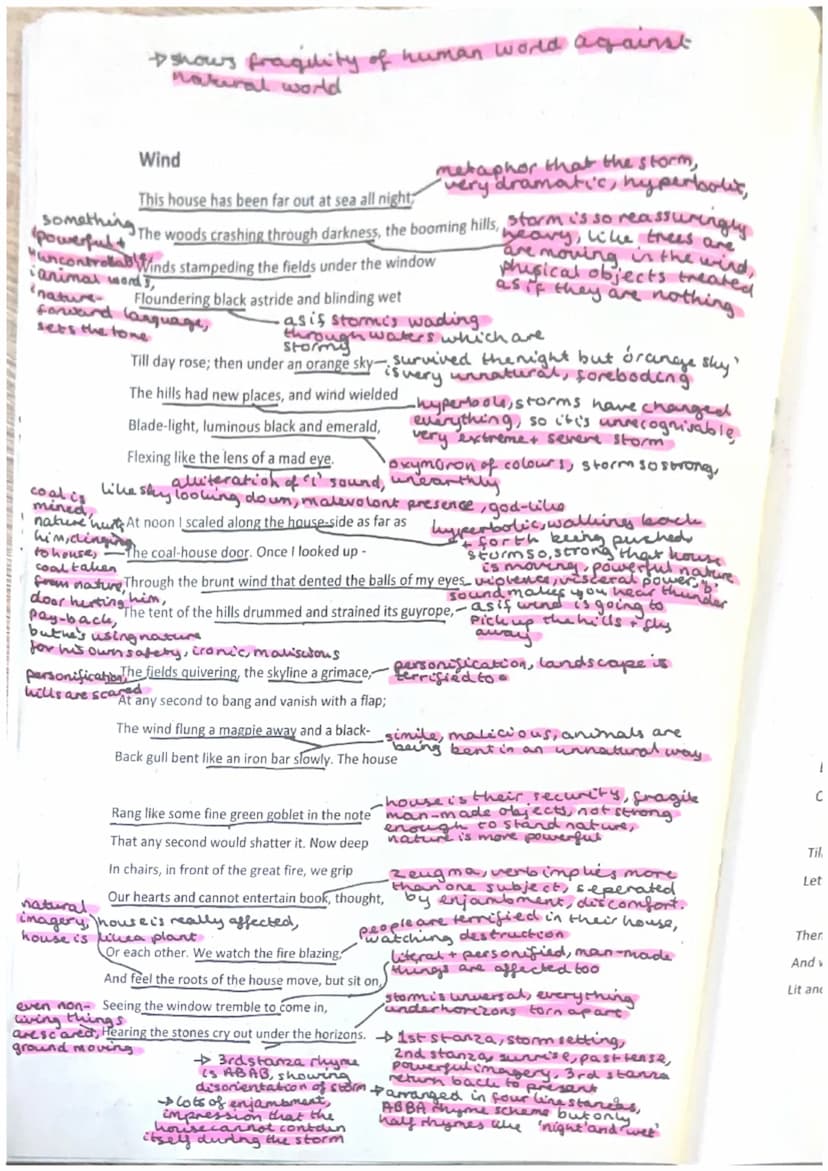 → shows fragility of human world against
natural world
Wind
metaphor that the storm,
very dramatic, hyperbolic,
This house has been far out at sea all night,
something
powerful +
uncontrollable,
animal words,
nature-
forward language,
sets the tone
The woods crashing through darkness, the booming hills,
storm is so reassuringly
heavy, like trees are
are moving in the wind,
physical objects treated
as if they are nothing
Winds stampeding the fields under the window
Floundering black astride and blinding wet
as if storm is wading
through waters which are
stormy
Till day rose; then under an orange sky
survived the night but 'orange sky'
is very unnatural, foreboding
The hills had new places, and wind wielded
hyperbole, storms have changed
everything, so it's unrecognisable,
very extreme + severe storm
Blade-light, luminous black and emerald,
oxymoron of colours, storm so strong,
unearthly
Flexing like the lens of a mad eye.
alliteration of 'l' sound,
like sky looking down, malevolent presence, god-like
coal is
mined,
nature hurts
him, clinging
to house,
coal taken
from nature,
door hurting him,
pay-back,
but he's using nature
for his own safety, ironic, malisious
At noon I scaled along the house-side as far as
hyperbolic, walking back
+ forth being pushed
storm so, strong that house
is moving, powerful nature
The coal-house door. Once I looked up -
Through the brunt wind that dented the balls of my eyes
violence, visceral power, "b"
sound makes you hear thunder
The tent of the hills drummed and strained its guyrope,
as if wind is going to
pick up the hills + fly
away
personification,
hills are scared
The fields quivering, the skyline a grimace,
personification, landscape is
terrified to
At any second to bang and vanish with a flap;
The wind flung a magpie away and a black-
simile, malicious, animals are
being bent in an unnatural way
Back gull bent like an iron bar slowly. The house
house is their security, fragile
man-made objects, not strong
enough to stand nature,
nature is more powerful
Rang like some fine green goblet in the note
That any second would shatter it. Now deep
In chairs, in front of the great fire, we grip
zeugma, verb implies more
than one subject, seperated
by enjambment, discomfort.
Our hearts and cannot entertain book, thought,
natural
imagery,
house is like a plant
house is really affected,
people are terrified in their house,
watching destruction
Or each other. We watch the fire blazing,
literal + personified, man-made
things are affected too
And feel the roots of the house move, but sit on,
even non-
living things
are scared,
ground moving
Seeing the window tremble to come in,
storm is unversal, everything
under horizons torn apart
Hearing the stones cry out under the horizons.
→ 3rd stanza rhyme
is ABAB, showing
disorientation of storm
→ lots of enjambment,
impression that the
house cannot contain
itself during the storm
→ 1st stanza, storm setting,
2nd stanza, sunrise, past tense,
powerful imagery, 3rd stanza
return back to present
→ arranged in four line stanzas,
ABBA rhyme scheme but only
half rhymes like 'night' and 'wet'
Til
Let
Ther
And w
Lit and